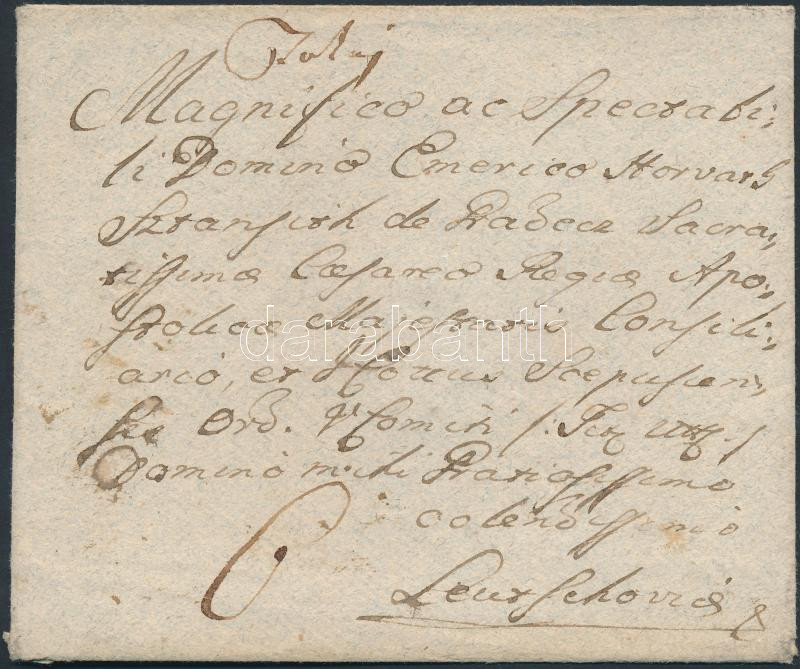 Tokaj
Magnifico ac Spectabi:
li Domino Emerico Horvath
Sztansith de Gradecz Sacra:
tissimæ Cæsareo Regiæ Apo:
stolicæ Majestatis Consili:
ario, et I Cottus Scepusien:
sis Ord. V Comiti /: Titt :/
Domino mihi Gratiosissimo
colendissimo
6
Leutschoviæ
darabanth